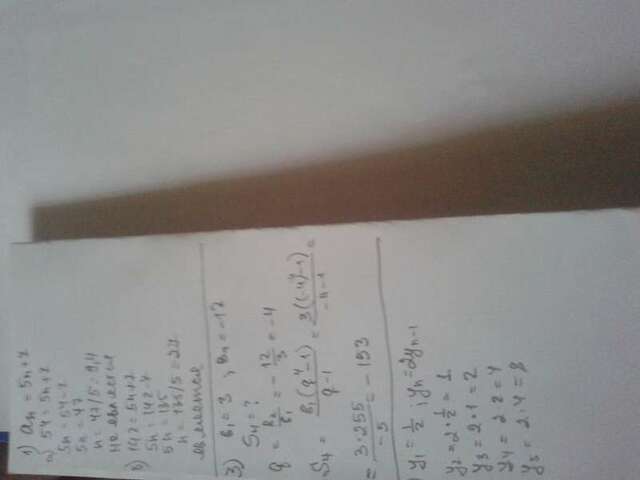 1) aₙ = 5n+7
а) 54 = 5n+7
5n = 54-7
5n = 47
n = 47/5 = 9,4
не является
б) 142 = 5n+7
5n = 142-7
5n = 135
n = 135/5 = 27
является
3) b₁ = 3 ; b₂ = -12
S₄ = ?
q = b₂/b₁ = -12/3 = -4
S₄ = b₁(q⁴-1)/q-1 = 3((-4)⁴-1)/-4-1 =
= 3·255/-5 = -153
) y₁ = 1/2 ; yₙ = 2yₙ₋₁
y₂ = 2·1/2 = 1
y₃ = 2·1 = 2
y₄ = 2·2 = 4
y₅ = 2·4 = 8